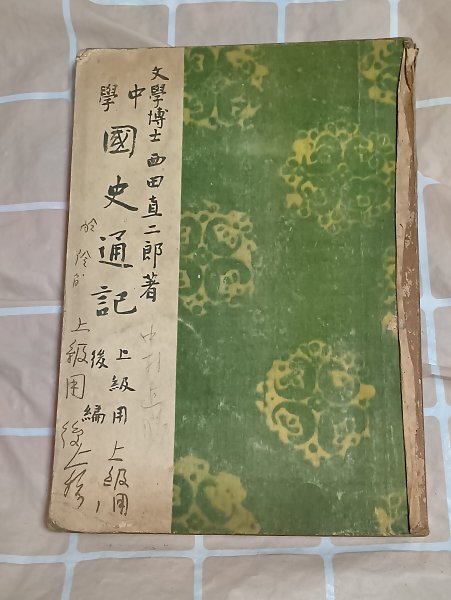 文學博士 西田直二郎著
中學
國史通記
上級用
後編
上級用
上級用